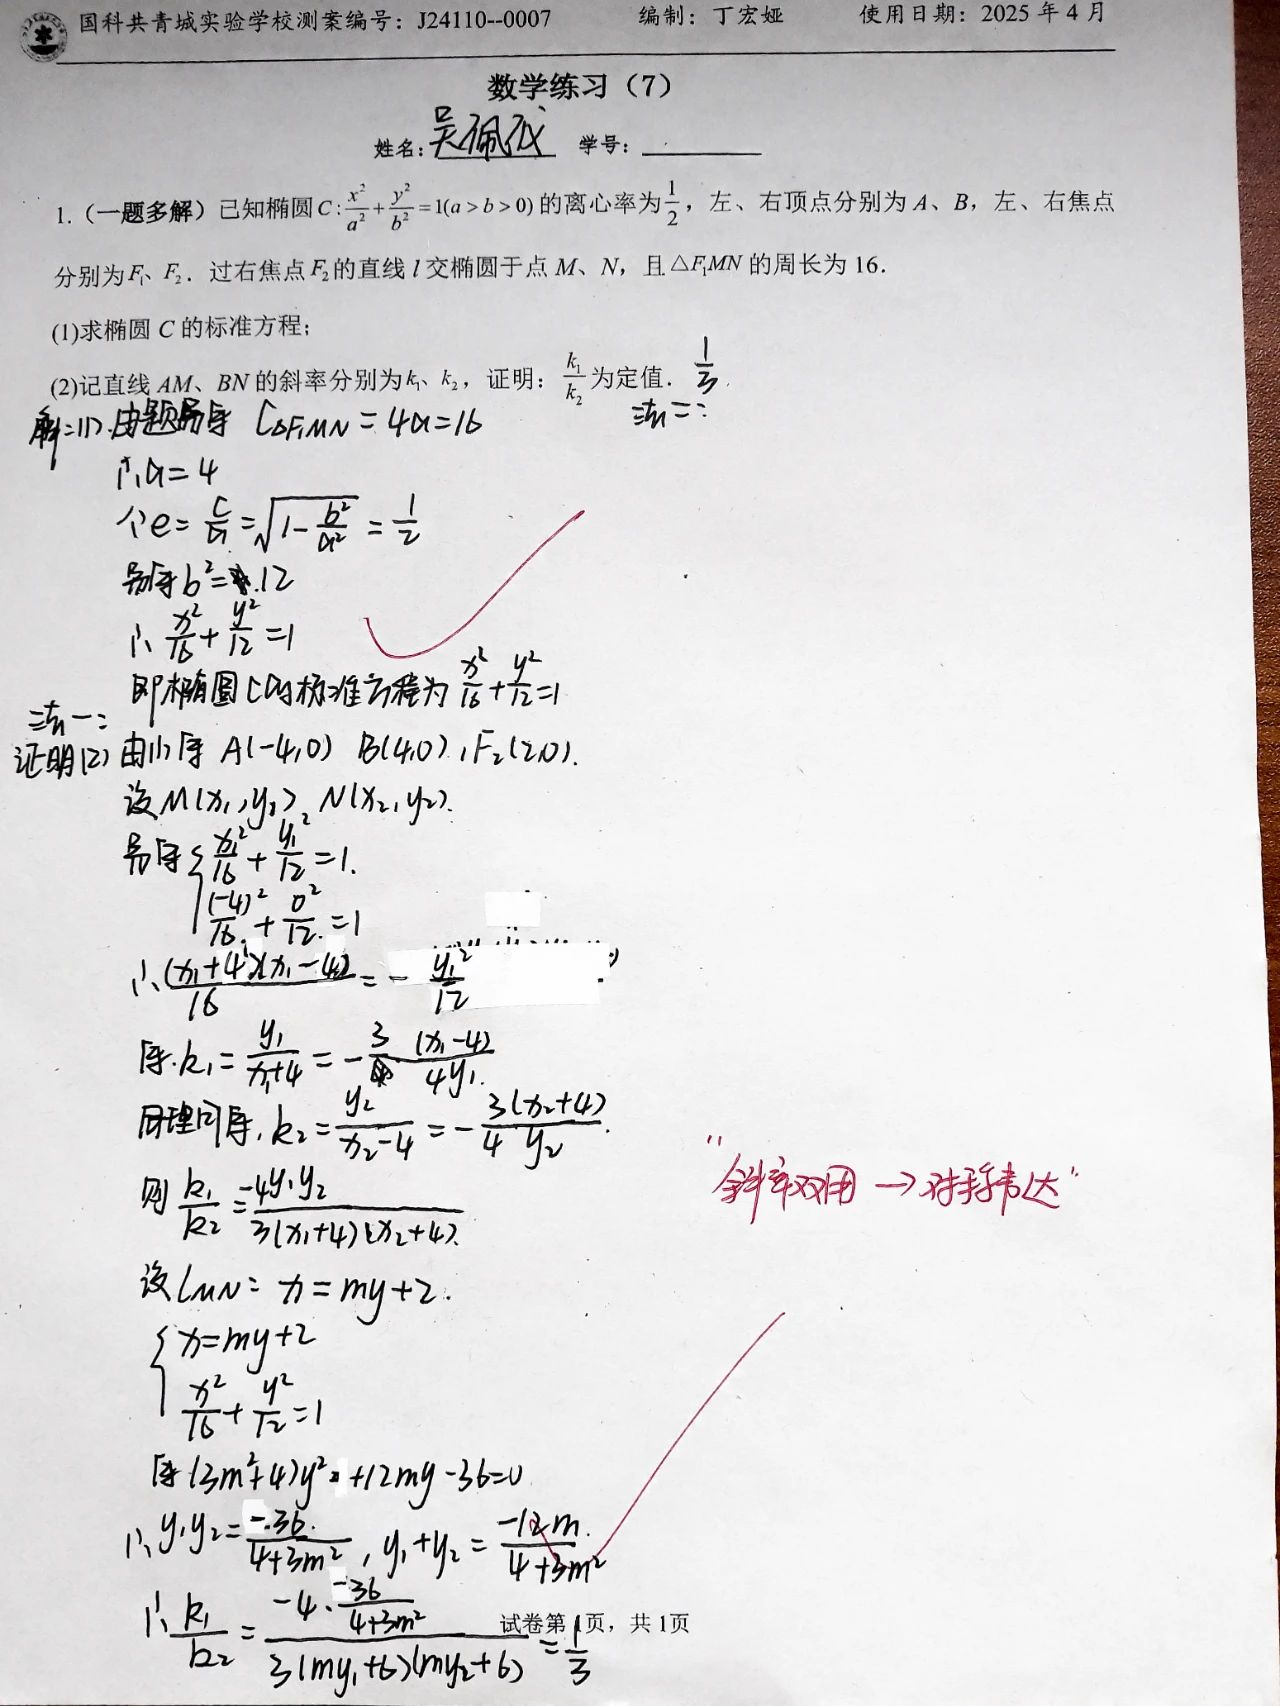 国科共青城实验学校测案编号：J24110--0007 编制：丁宏娅 使用日期：2025 年 4 月
数学练习（7）
姓名：吴佩 学号：
1.（一题多解）已知椭圆C:x²/a²+y²/b²=1(a>b>0)的离心率为1/2，左、右顶点分别为 A、B，左、右焦点
分别为F₁、F₂．过右焦点F₂的直线 l 交椭圆于点 M、N，且△F₁MN 的周长为 16．
(1)求椭圆 C 的标准方程；
(2)记直线 AM、BN 的斜率分别为k₁、k₂，证明：k₁/k₂为定值． 1/3
解：(1).由题易得 C△F₁MN = 4a=16
法二：
∴a=4
个e=c/a=√(1-b²/a²)=1/2
易得b²=12
∴x²/16+y²/12=1
即椭圆C的标准方程为x²/16+y²/12=1
法一：
证明(2) 由(1)得 A(-4,0) B(4,0),F₂(2,0).
设M(x₁,y₁),N(x₂,y₂).
易得{x₁²/16+y₁²/12=1.
(-4)²/16+0²/12=1
∴(x₁+4)(x₁-4)/16=-y₁²/12
得.k₁=y₁/(x₁+4)=-3(x₁-4)/4y₁.
同理可得,k₂=y₂/(x₂-4)=-3(x₂+4)/4y₂.
则k₁/k₂=-4y₁y₂/3(x₁+4)(x₂+4).
"斜率双用→对称韦达"
设lMN: x=my+2.
{x=my+2
x²/16+y²/12=1
得(3m²+4)y²+12my-36=0
∴y₁y₂=-36/(4+3m²),y₁+y₂=-12m/(4+3m²)
∴k₁/k₂=-4·(-36/(4+3m²))/3(my₁+6)(my₂+6)=1/3
试卷第 1页，共 1页